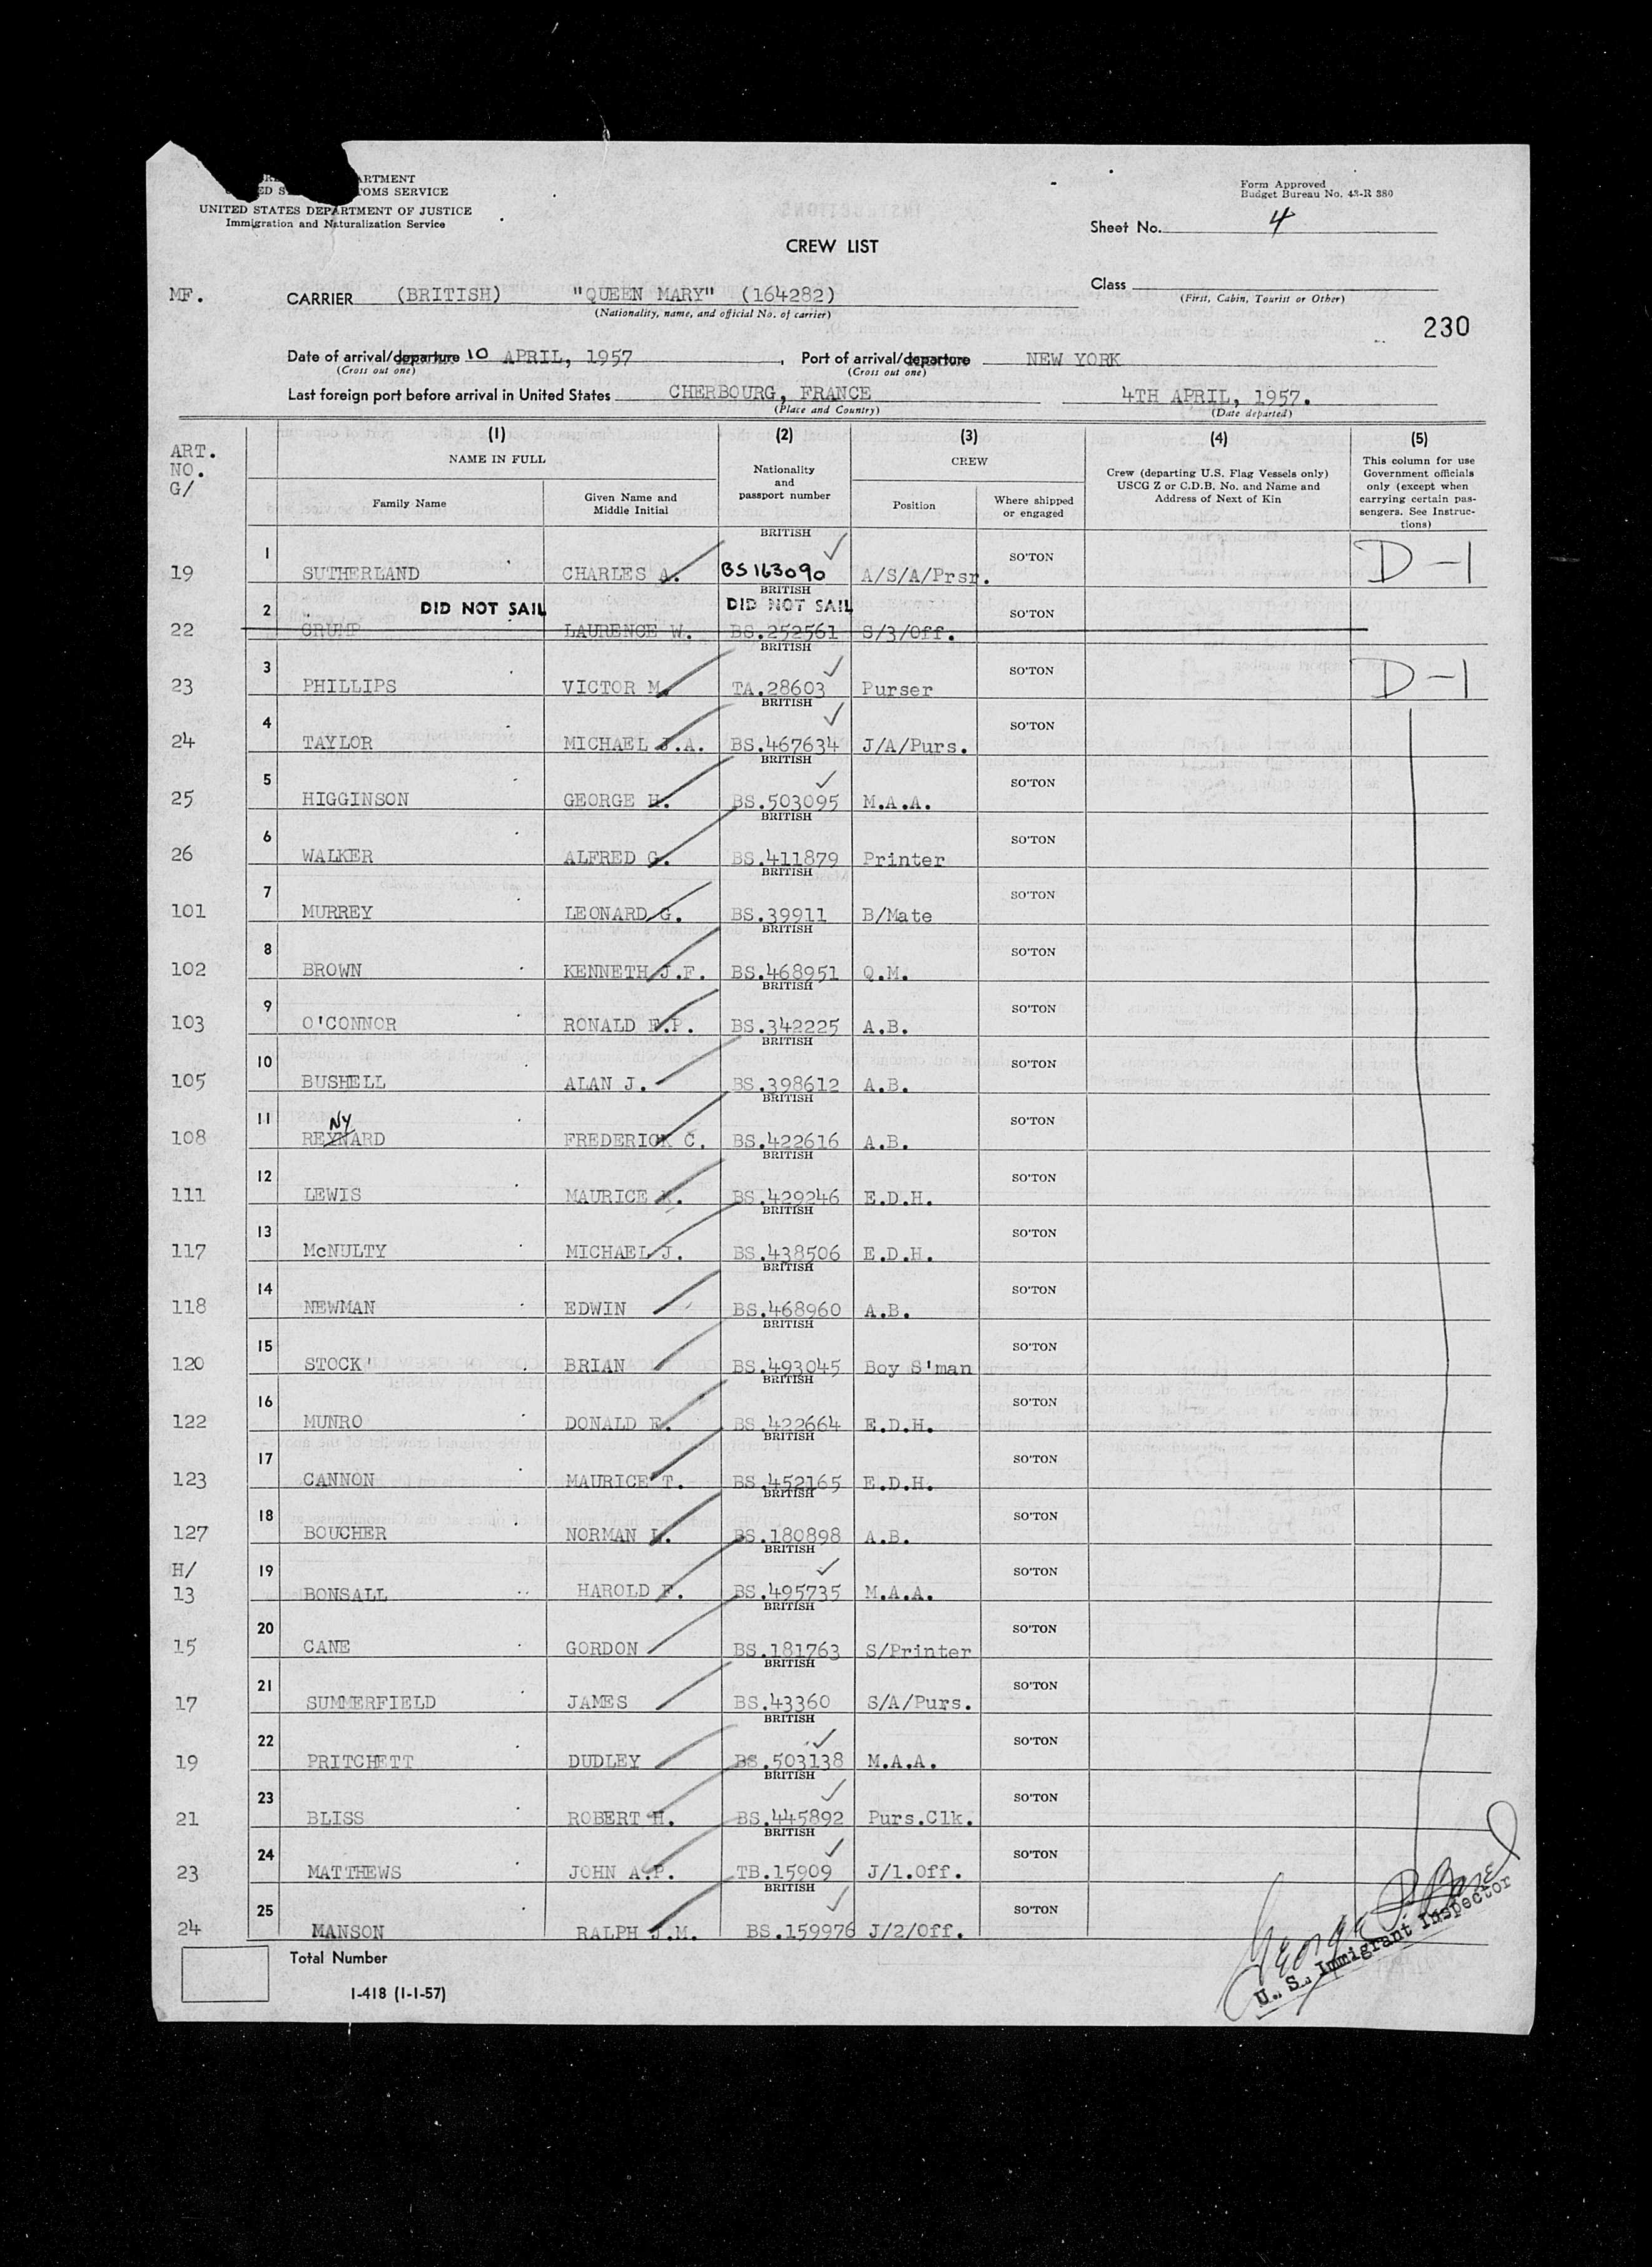 ARTMENT
TOMS SERVICE
UNITED STATES DEPARTMENT OF JUSTICE
Immigration and Naturalization Service
Form Approved
Budget Bureau No. 43-R 380
Sheet No. 4
CREW LIST
MF. CARRIER (BRITISH) "QUEEN MARY" (164282)
(Nationality, name, and official No. of carrier)
Class
(First, Cabin, Tourist or Other)
230
Date of arrival/departure 10 APRIL, 1957, Port of arrival/departure NEW YORK
(Cross out one) (Cross out one)
Last foreign port before arrival in United States CHERBOURG, FRANCE 4TH APRIL, 1957.
(Place and Country) (Date departed)
ART. NO. G/
(1) (2) (3) (4) (5)
NAME IN FULL
Family Name
Given Name and Middle Initial
Nationality and passport number
CREW
Position
Where shipped or engaged
Crew (departing U.S. Flag Vessels only) USCG Z or C.D.B. No. and Name and Address of Next of Kin
This column for use Government officials only (except when carrying certain passengers. See Instructions)
19 1 SUTHERLAND CHARLES A. BRITISH BS 163090 A/S/A/Prsr. SO'TON D-1
22 2 CRUMP DID NOT SAIL LAURENCE W. BRITISH DID NOT SAIL BS.252561 S/3/Off. SO'TON
23 3 PHILLIPS VICTOR M. BRITISH TA.28603 Purser SO'TON D-1
24 4 TAYLOR MICHAEL J.A. BRITISH BS.467634 J/A/Purs. SO'TON
25 5 HIGGINSON GEORGE H. BRITISH BS.503095 M.A.A. SO'TON
26 6 WALKER ALFRED G. BRITISH BS.411879 Printer SO'TON
101 7 MURREY LEONARD G. BRITISH BS.39911 B/Mate SO'TON
102 8 BROWN KENNETH J.F. BRITISH BS.468951 Q.M. SO'TON
103 9 O'CONNOR RONALD E.P. BRITISH BS.342225 A.B. SO'TON
105 10 BUSHELL ALAN J. BRITISH BS.398612 A.B. SO'TON
108 11 NY REYNARD FREDERICK C. BRITISH BS.422616 A.B. SO'TON
111 12 LEWIS MAURICE K. BRITISH BS.429246 E.D.H. SO'TON
117 13 McNULTY MICHAEL J. BRITISH BS.438506 E.D.H. SO'TON
118 14 NEWMAN EDWIN BRITISH BS.468960 A.B. SO'TON
120 15 STOCK' BRIAN BRITISH BS.493045 Boy S'man SO'TON
122 16 MUNRO DONALD E. BRITISH BS.422664 E.D.H. SO'TON
123 17 CANNON MAURICE T. BRITISH BS.452165 E.D.H. SO'TON
127 18 BOUCHER NORMAN L. BRITISH BS.180898 A.B. SO'TON
H/ 13 19 BONSALL HAROLD F. BRITISH BS.495735 M.A.A. SO'TON
15 20 CANE GORDON BRITISH BS.181763 S/Printer SO'TON
17 21 SUMMERFIELD JAMES BRITISH BS.43360 S/A/Purs. SO'TON
19 22 PRITCHETT DUDLEY BRITISH BS.503138 M.A.A. SO'TON
21 23 BLISS ROBERT H. BRITISH BS.445892 Purs.Clk. SO'TON
23 24 MATTHEWS JOHN A.P. BRITISH TB.15909 J/1.Off. SO'TON
24 25 MANSON RALPH J.M. BRITISH BS.159976 J/2/Off. SO'TON
Total Number
I-418 (1-1-57)
George
U. S. Immigrant Inspector